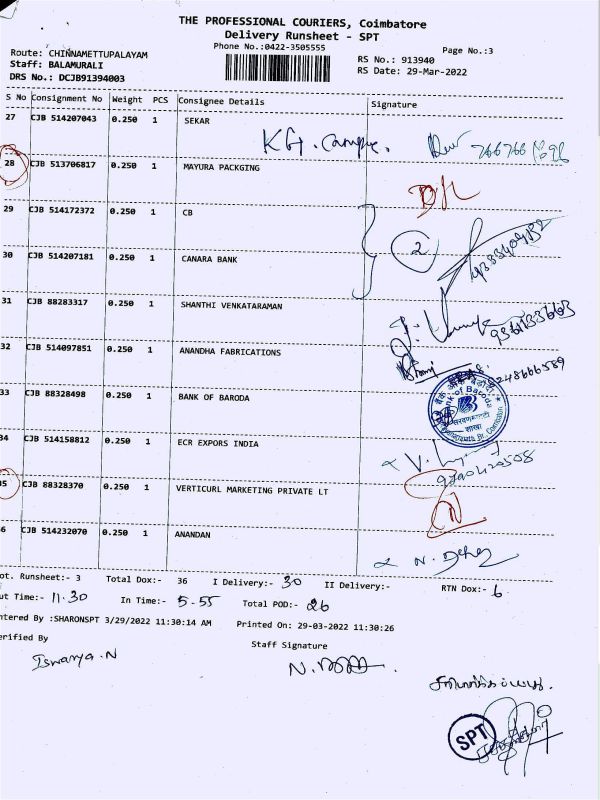 THE PROFESSIONAL COURIERS, Coimbatore
Delivery Runsheet - SPT
Phone No.:0422-3505555
Page No.:3
Route: CHINNAMETTUPALAYAM
Staff: BALAMURALI
DRS No.: DCJB91394003
RS No.: 913940
RS Date: 29-Mar-2022
S No Consignment No Weight PCS Consignee Details Signature
27 CJB 514207043 0.250 1 SEKAR
KG. Campus.
28 CJB 513706817 0.250 1 MAYURA PACKGING
D/L
29 CJB 514172372 0.250 1 CB
2
30 CJB 514207181 0.250 1 CANARA BANK
31 CJB 88283317 0.250 1 SHANTHI VENKATARAMAN
32 CJB 514097851 0.250 1 ANANDHA FABRICATIONS
33 CJB 88328498 0.250 1 BANK OF BARODA
Bank of Baroda
शाखा
34 CJB 514158812 0.250 1 ECR EXPORS INDIA
35 CJB 88328370 0.250 1 VERTICURL MARKETING PRIVATE LT
6 CJB 514232070 0.250 1 ANANDAN
ot. Runsheet:- 3 Total Dox:- 36 I Delivery:- 30 II Delivery:- RTN Dox:- 6
ut Time:- 11.30 In Time:- 5.55 Total POD:- 26
ntered By :SHARONSPT 3/29/2022 11:30:14 AM Printed On: 29-03-2022 11:30:26
erified By
Staff Signature
Iswarya.N
SPT